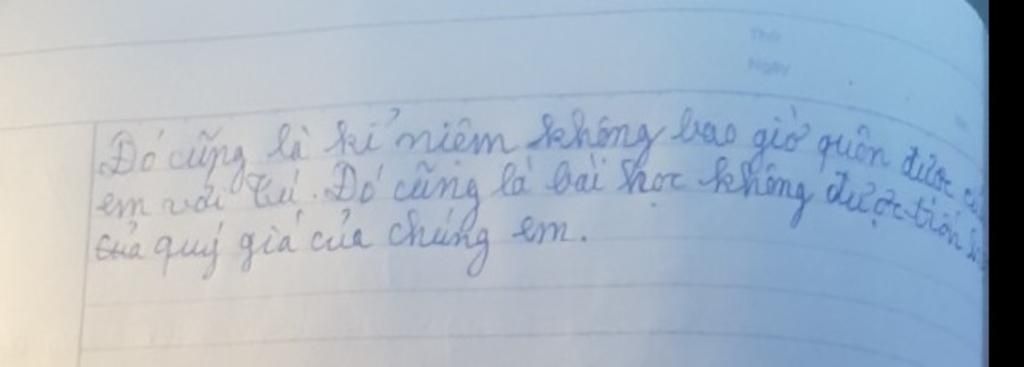 Thứ
Ngày
Đó cũng là kỉ niêm không bao giờ quên được củ
em với Tú. Đó cũng là bài học không được trốn
của quý giá của chúng em.